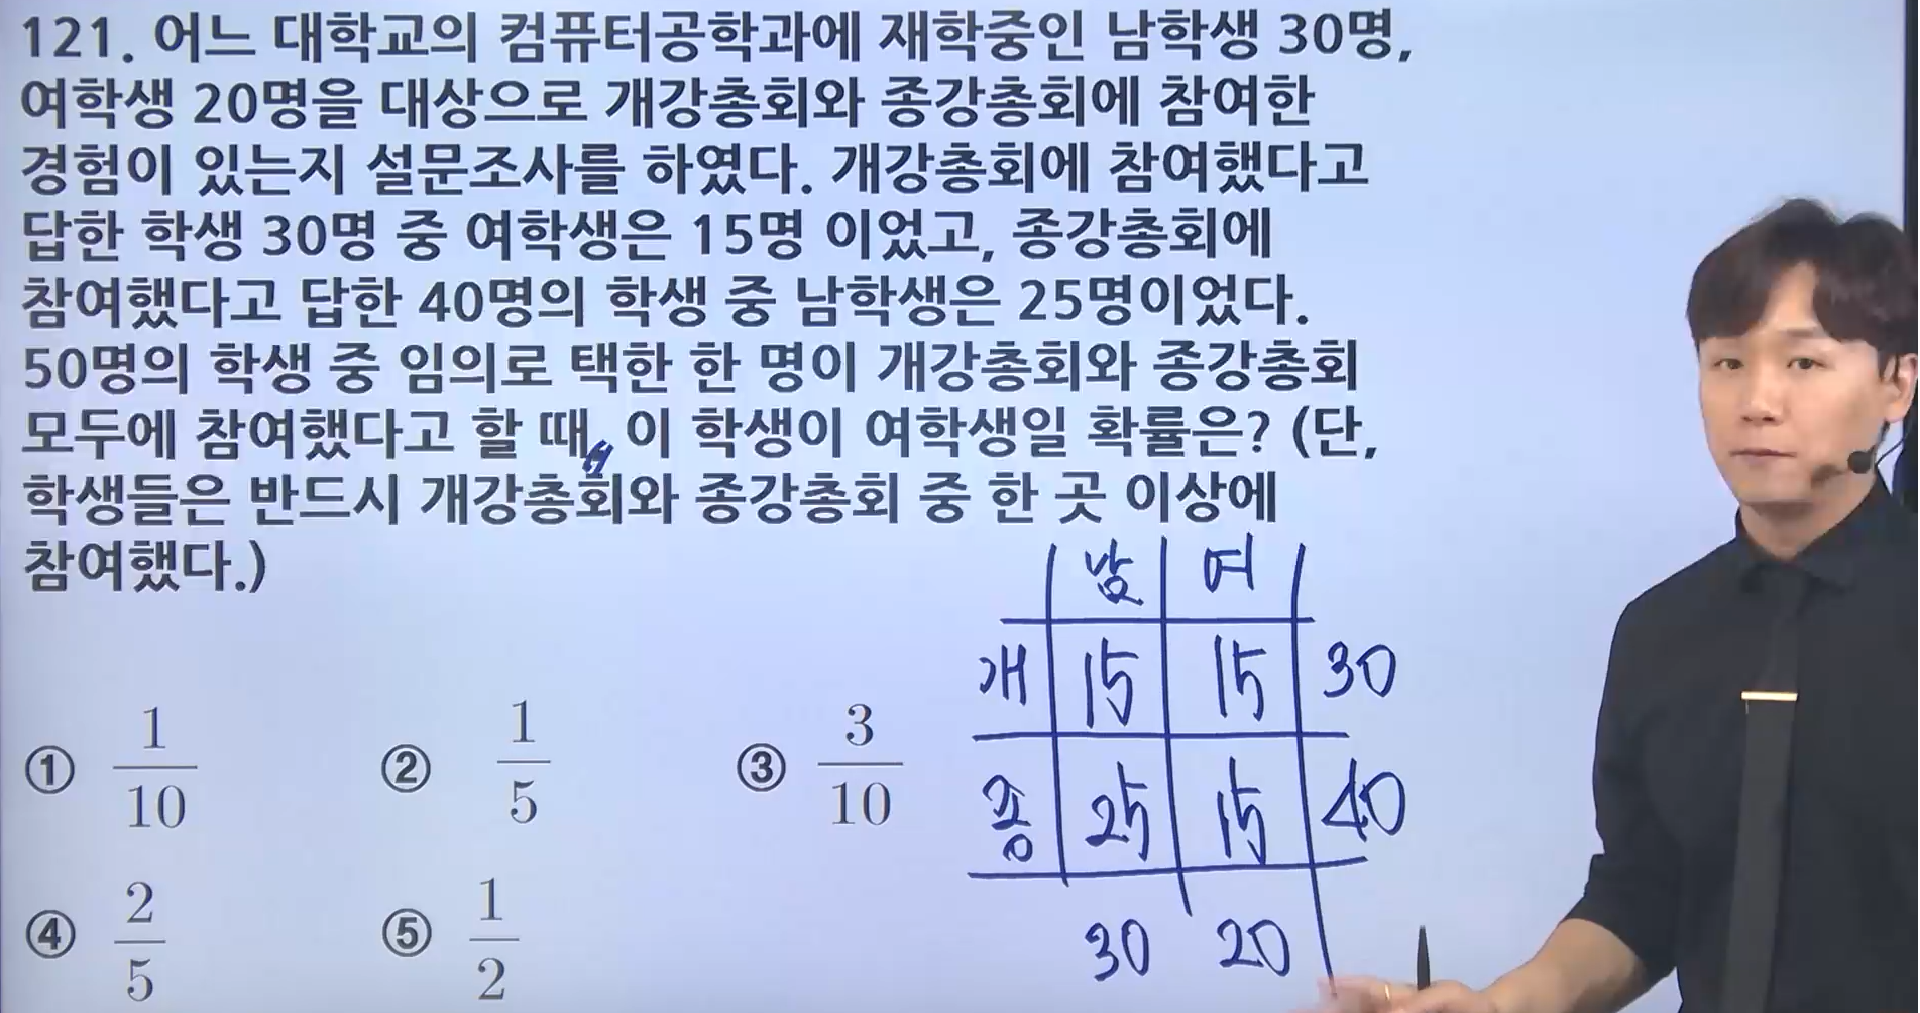 121. 어느 대학교의 컴퓨터공학과에 재학중인 남학생 30명,
여학생 20명을 대상으로 개강총회와 종강총회에 참여한
경험이 있는지 설문조사를 하였다. 개강총회에 참여했다고
답한 학생 30명 중 여학생은 15명 이었고, 종강총회에
참여했다고 답한 40명의 학생 중 남학생은 25명이었다.
50명의 학생 중 임의로 택한 한 명이 개강총회와 종강총회
모두에 참여했다고 할 때, 이 학생이 여학생일 확률은? (단,
학생들은 반드시 개강총회와 종강총회 중 한 곳 이상에
참여했다.)
① 1/10 ② 1/5 ③ 3/10
④ 2/5 ⑤ 1/2
남 여
개 15 15 30
종 25 15 40
30 20